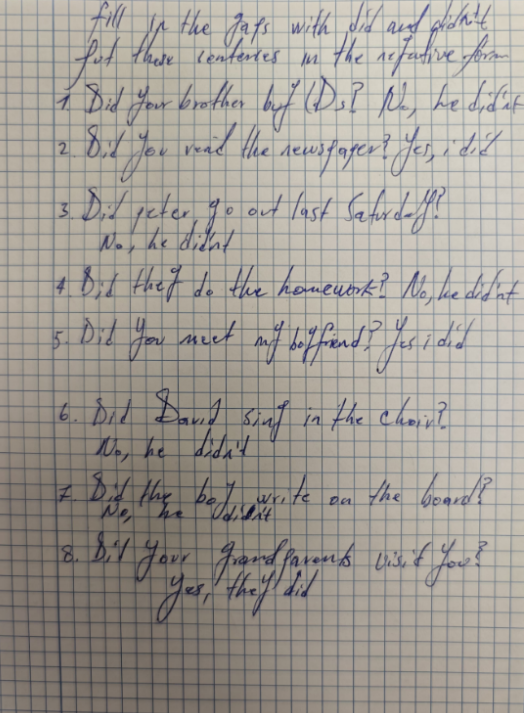 fill in the gaps with did and didn't
put these sentences in the negative form
1. Did your brother buy CDs? No, he didn't
2. Did you read the newspaper? Yes, i did
3. Did peter go out last Saturday?
No, he didnt
4. Did they do the homework? No, he didn't
5. Did you meet my boyfriend? Yes i did
6. Did David sing in the choir?
No, he didn't
7. Did the boy write on the board?
No, he didn't
8. Did your grandparents visit you?
Yes, they did